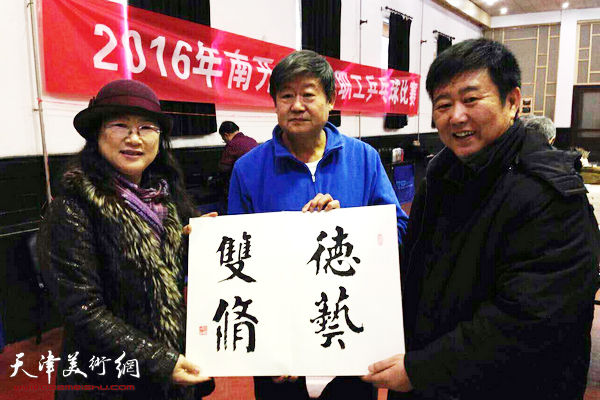 2016年南开 职工乒乓球比赛
德藝
雙脩
天津美術網